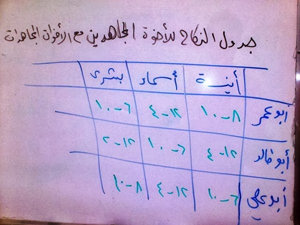 جدول النكاح للأخوة المجاهدين مع الأخوات المجاهدات
أنيسة أسماء بشرى
ابو عمر ٨-١٠ ١٢-٤ ٦-١٠
أبو خالد ١٢-٤ ٦-١٠ ١٢-٢
أبو علي ٦-١٠ ١٢-٤ ٨-١٠